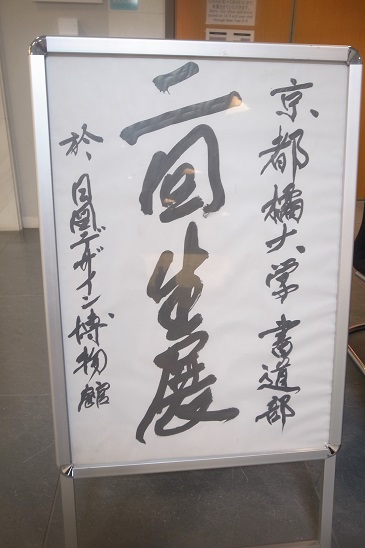 京都橘大学 書道部
二回生展
於、日図デザイン博物館